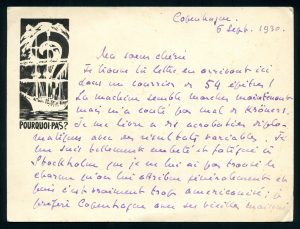 Copenhague.
6 Sept. 1930.
POURQUOI-PAS?
Ma soeur chérie
Je trouve ta lettre en arrivant ici
dans un courrier de 54 épîtres!
La machine semble marcher maintenant
mais m'a coûté pas mal de Kröners.
Je me livre à des acrobaties diplo-
matiques avec des résultats variables. Je
me suis tellement embêté et fatigué à
Stockholm que je ne lui ai pas trouvé le
charme qu'on lui attribue généralement et
puis c'est vraiment trop américanisé; je
préfère Copenhague avec ses vieilles maisons